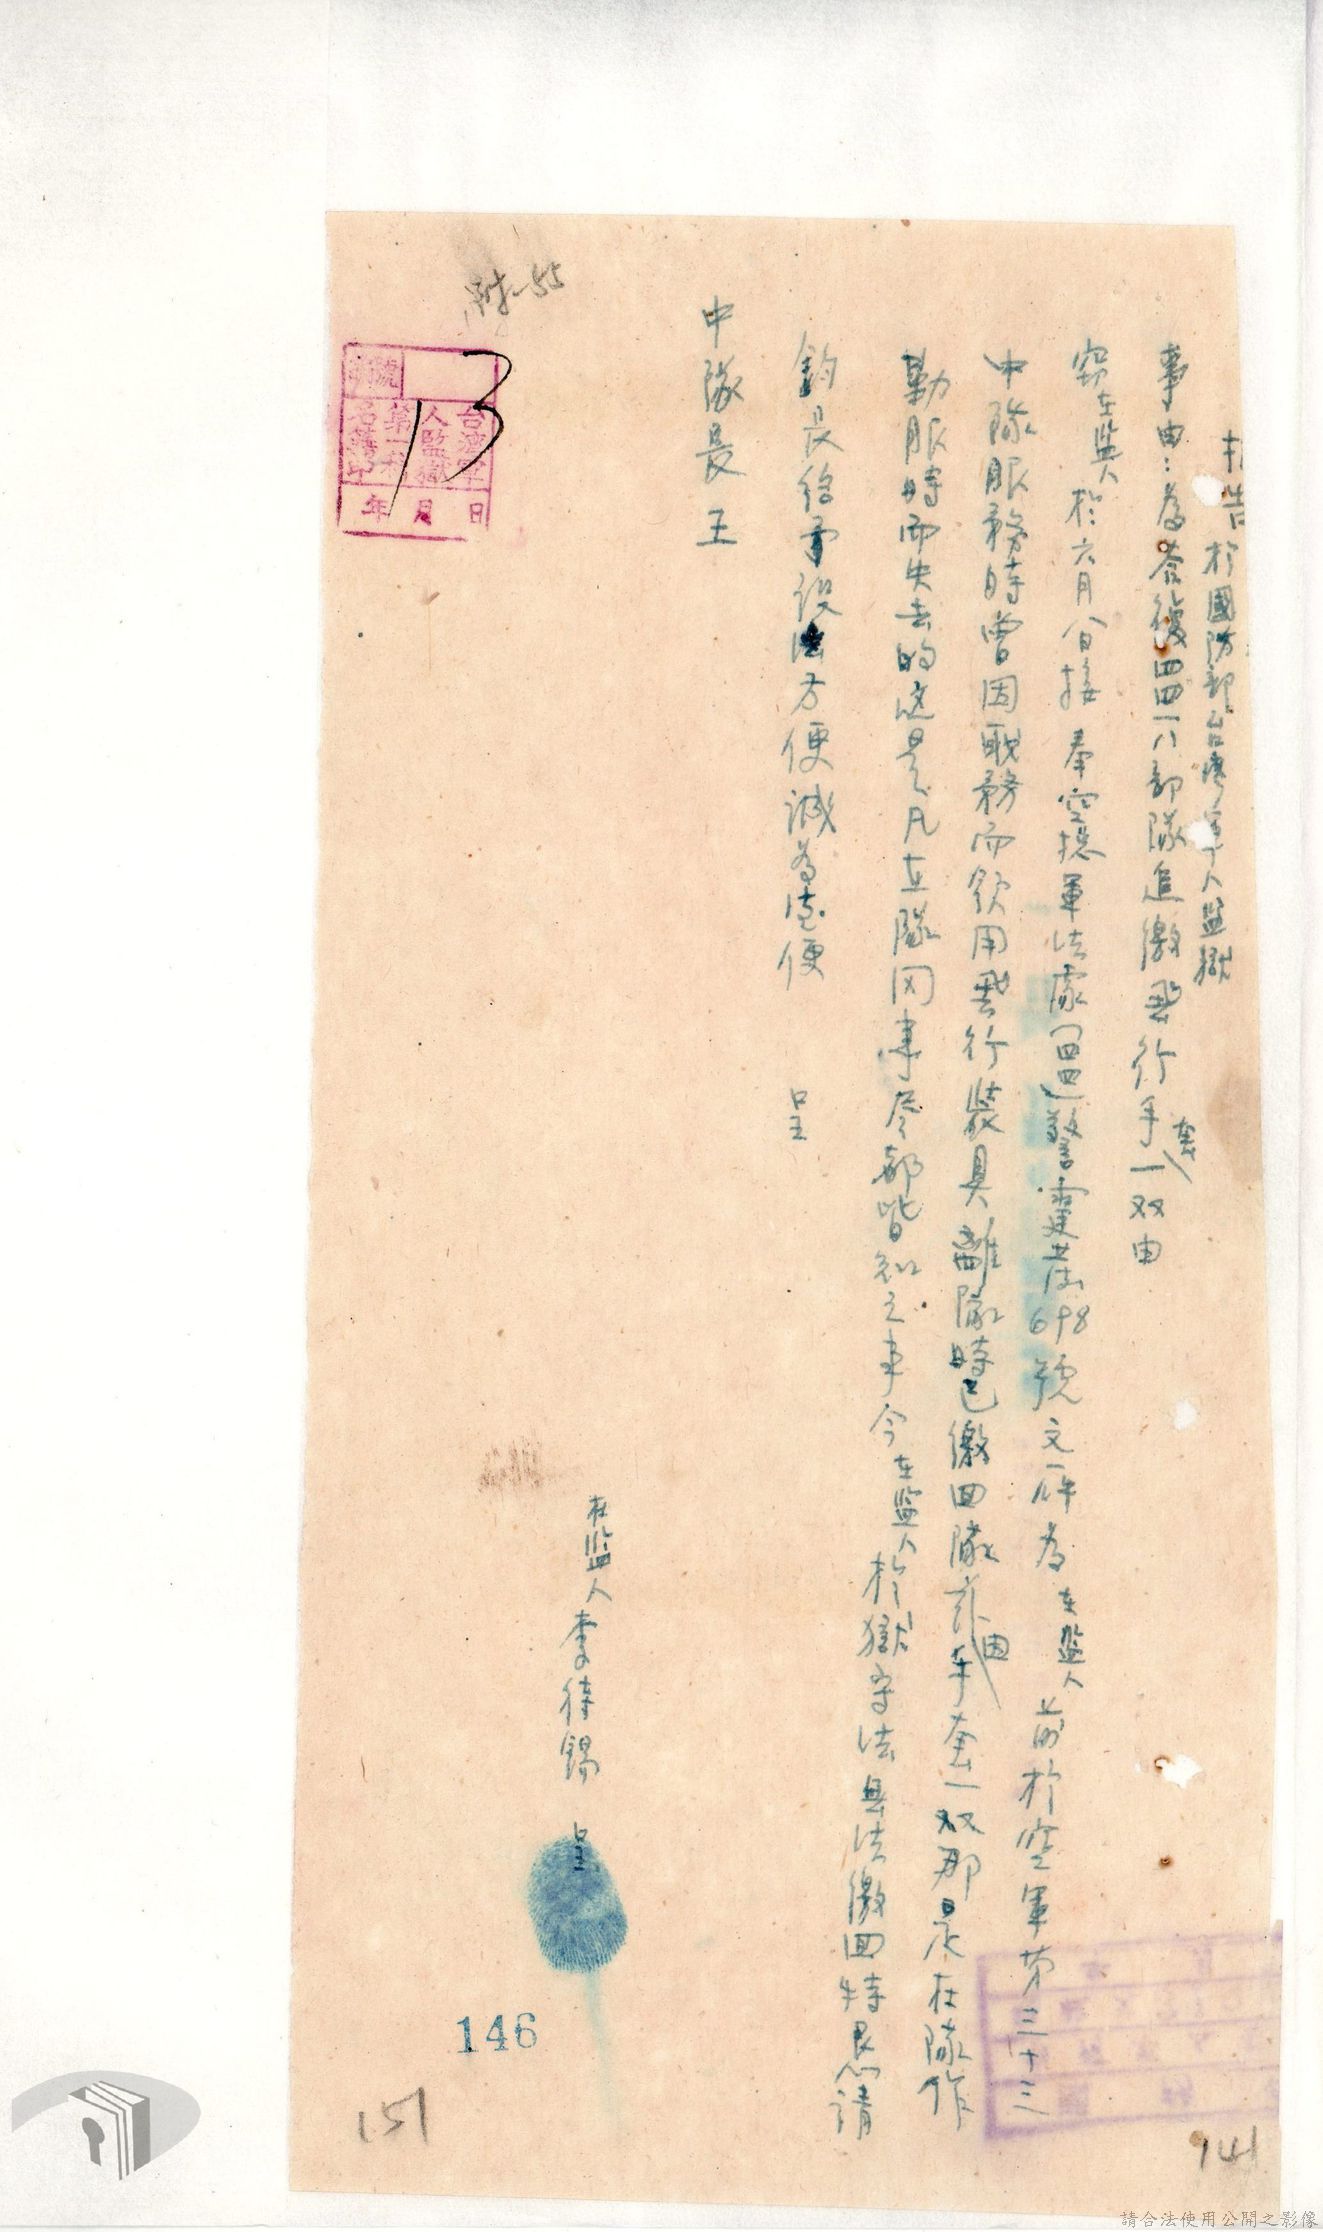 報告 於國防部台灣軍人監獄
事由：為答復四四一八部隊追繳飛行手套一双由
窃在監人於六月八日接奉空總軍法處(四四)警霆芸698號文一件為在監人前於空軍第三十三
中隊服務時曾因職務而領用飛行裝具離隊時已繳回隊部由手套一双那是在隊作
勤服時而失去的這是凡在隊同事尽都皆知之事今在監人於獄守法無法繳回特恳請
鈞長給予設法方便誠為德便 呈
中隊長王
在監人李待錫 呈
附-55
號
台灣軍
人監獄
第一科
名籍印
年 月 日
13
146
151
141
請合法使用公開之影像